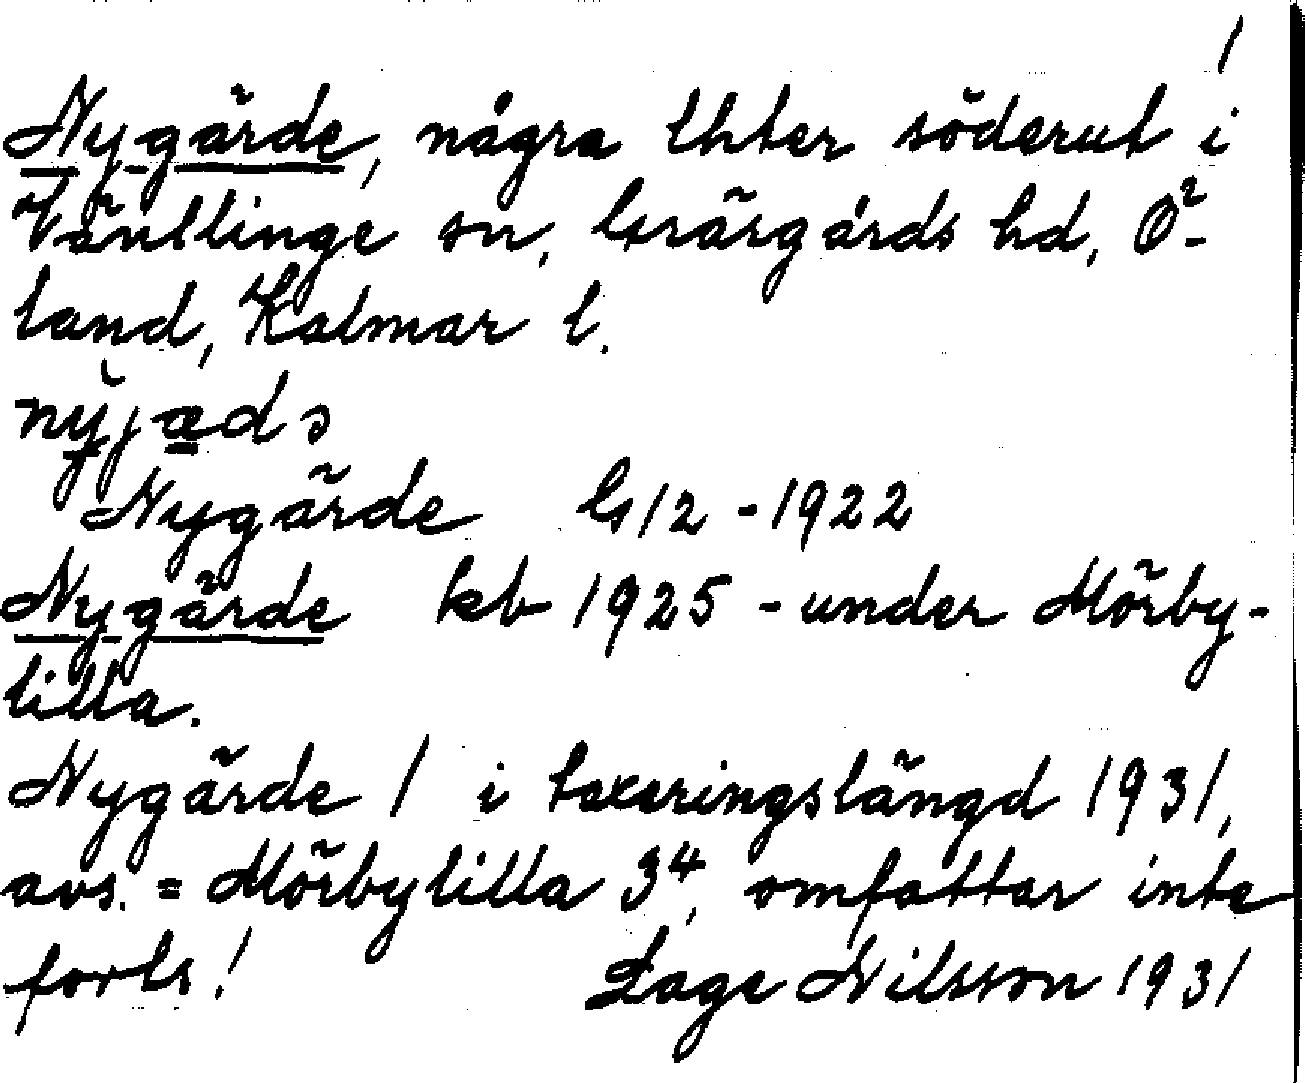 1
Nygärde, några lhter söderut i
Väntlinge sn, Gräsgårds hd, Ö-
land, Kalmar l.
Nygärde G 12 - 1922
Nygärde kb 1925 - under Mörby-
lilla.
Nygärde 1 i taxeringslängd 1931,
avs. = Mörbylilla 3⁴, omfattar inte
forts! Lage Nilsson 1931